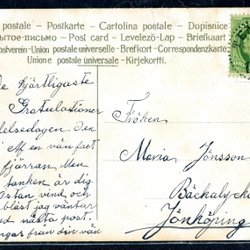 postale - Postkarte - Cartolina postale - Dopisnice
ЫТОЕ-ПИСЬМО - Post card - Levelező-Lap - Briefkaart
Postverein-Union postale universelle-Brefkort-Correspondenzkarte
Unione postale universale - Kirjekortti.
De hjärtligaste
Gratulationer
delsedagen. Den
af en vän fjet
fjärran. Men
tanken är dig
Östan vind, och
blåst jag väntar
nästa post.
från din vän
Fröken
Maria Jönsson
Bäckalyckan
Jönköping